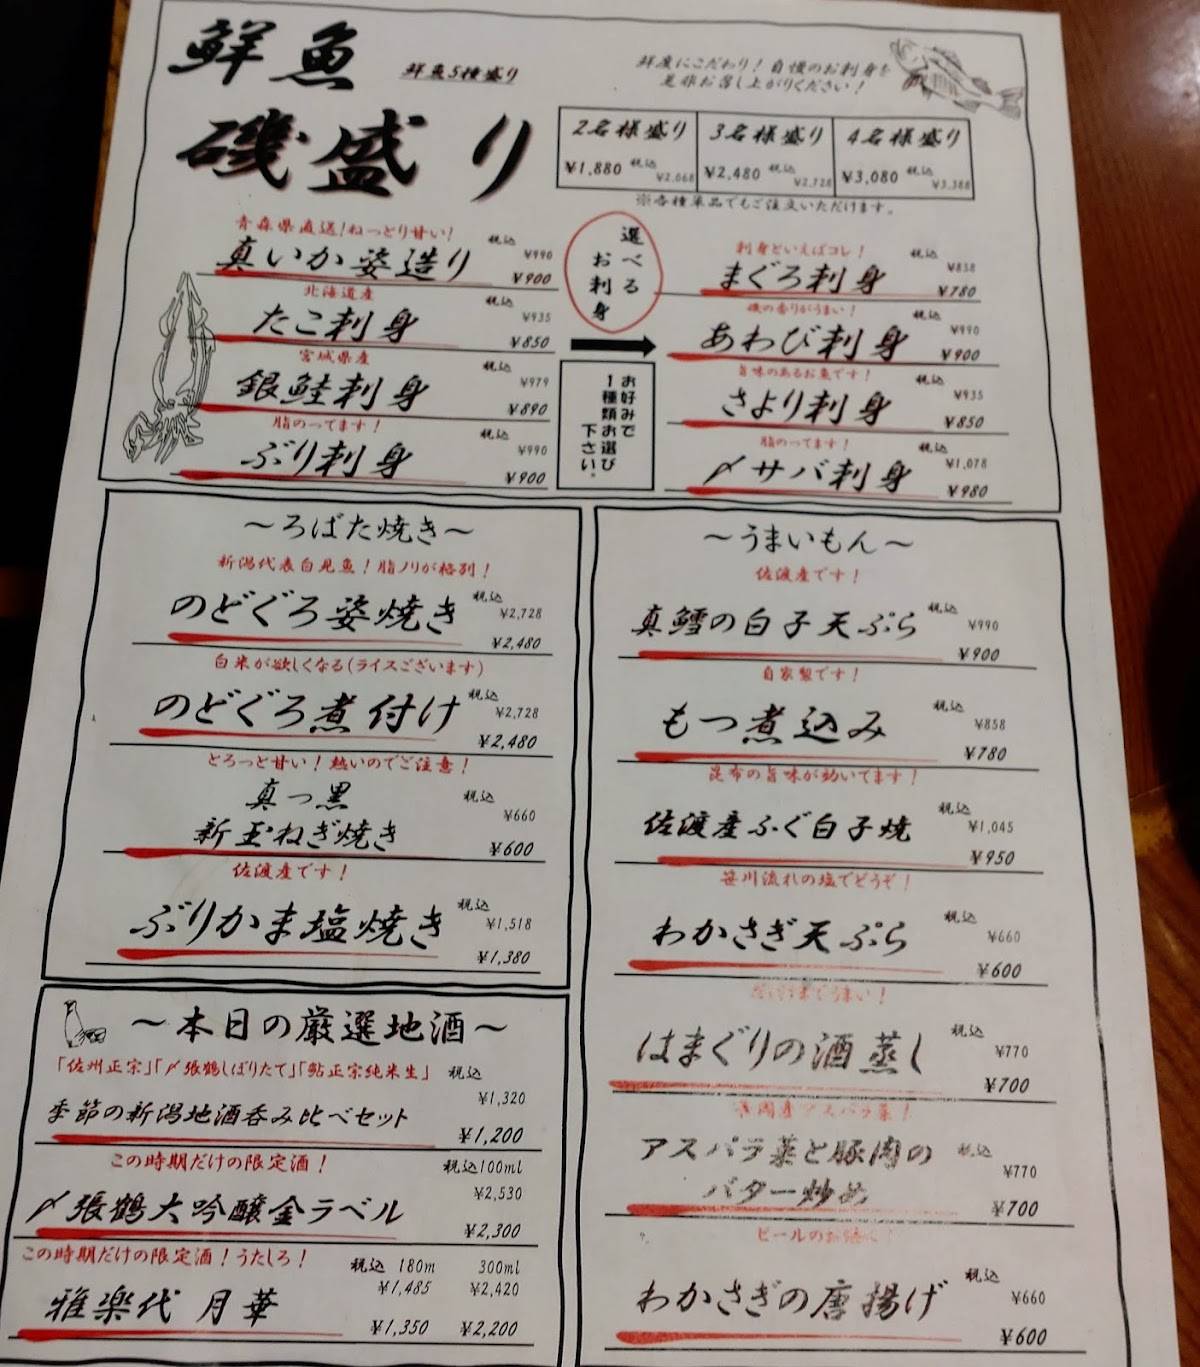 鮮魚
鮮魚5種盛り
磯盛り
鮮度にこだわり！自慢のお刺身を
是非お召し上がりください！
2名様盛り ¥1,880 税込 ¥2,068
3名様盛り ¥2,480 税込 ¥2,728
4名様盛り ¥3,080 税込 ¥3,388
※各種単品でもご注文いただけます。
青森県直送！ねっとり甘い！
真いか姿造り 税込 ¥990 ¥900
北海道産
たこ刺身 税込 ¥935 ¥850
宮城県産
銀鮭刺身 税込 ¥979 ¥890
脂のってます！
ぶり刺身 税込 ¥990 ¥900
選べる
お刺身
お好みで
1種類お選び
下さい。
刺身といえばコレ！
まぐろ刺身 税込 ¥858 ¥780
磯の香りがうまい！
あわび刺身 税込 ¥990 ¥900
旨味のあるお魚です！
さより刺身 税込 ¥935 ¥850
脂のってます！
〆サバ刺身 税込 ¥1,078 ¥980
～ろばた焼き～
新潟代表白身魚！脂ノリが格別！
のどぐろ姿焼き 税込 ¥2,728 ¥2,480
白米が欲しくなる（ライスございます）
のどぐろ煮付け 税込 ¥2,728 ¥2,480
とろっと甘い！熱いのでご注意！
真っ黒
新玉ねぎ焼き 税込 ¥660 ¥600
佐渡産です！
ぶりかま塩焼き 税込 ¥1,518 ¥1,380
～本日の厳選地酒～
「佐州正宗」「〆張鶴しぼりたて」「鮎正宗純米生」 税込
¥1,320
季節の新潟地酒呑み比べセット ¥1,200
この時期だけの限定酒！ 税込100ml
¥2,530
〆張鶴大吟醸金ラベル ¥2,300
この時期だけの限定酒！うたしろ！ 税込 180m 300ml
¥1,485 ¥2,420
雅楽代 月華 ¥1,350 ¥2,200
～うまいもん～
佐渡産です！
真鱈の白子天ぷら 税込 ¥990 ¥900
自家製です！
もつ煮込み 税込 ¥858 ¥780
昆布の旨味が効いてます！
佐渡産ふぐ白子焼 税込 ¥1,045 ¥950
笹川流れの塩でどうぞ！
わかさぎ天ぷら 税込 ¥660 ¥600
だけまでうまい！
はまぐりの酒蒸し 税込 ¥770 ¥700
アスパラ菜！
アスパラ菜と豚肉の
バター炒め 税込 ¥770 ¥700
ビールのお供に！
わかさぎの唐揚げ 税込 ¥660 ¥600